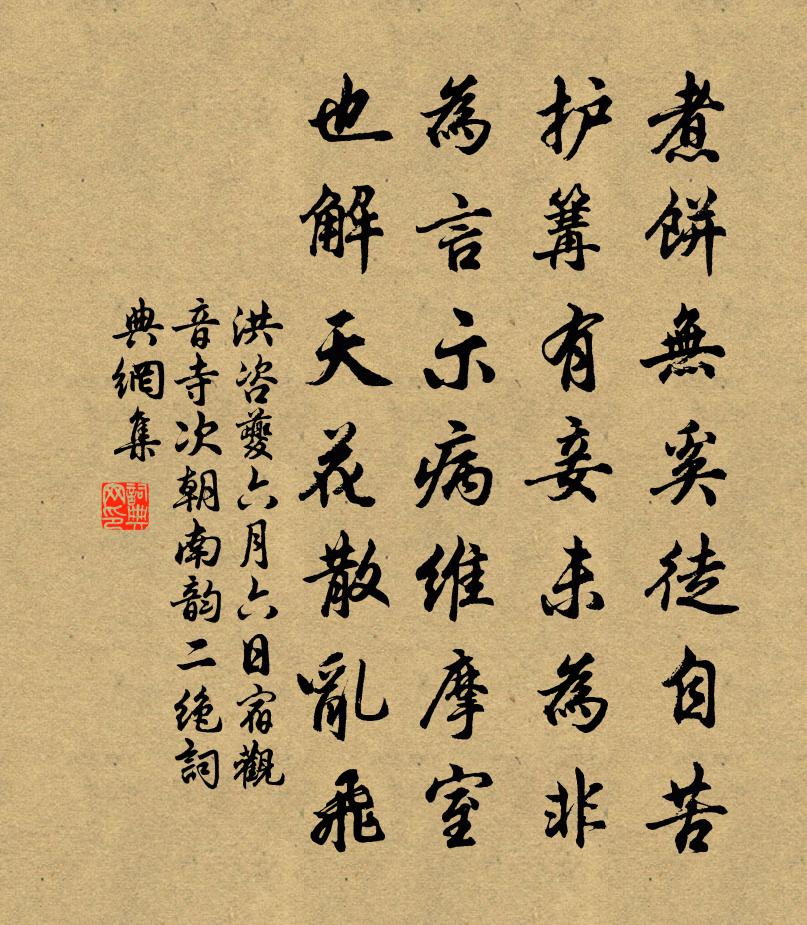 煮餅無奚徒自苦
护篝有妾未為非
為言示病維摩室
也解天花散亂飛
洪咨夔六月六日宿觀
音寺次朝南韵二绝詞
典網集
詞典网印